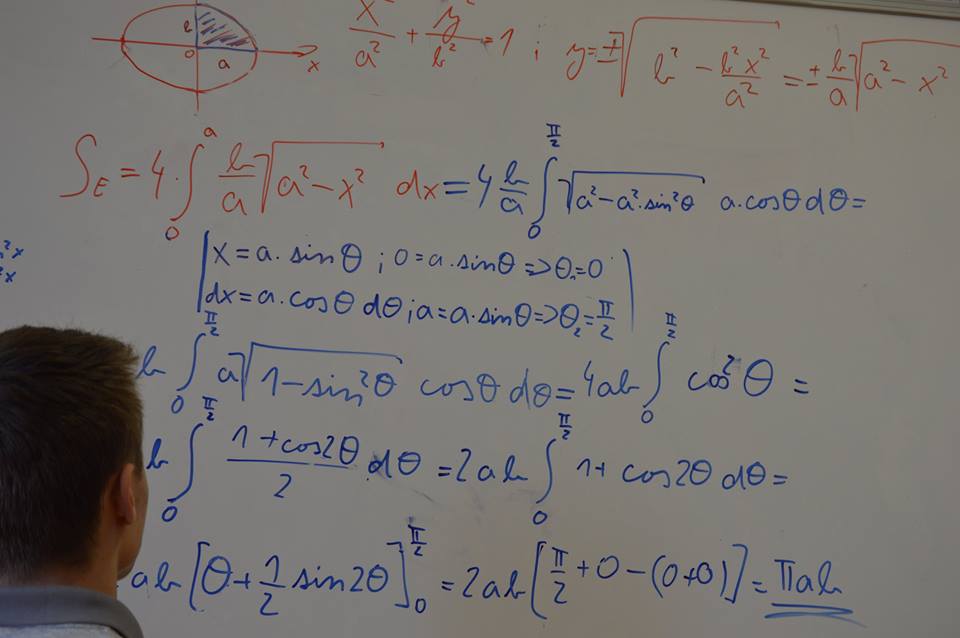 b
0 a x
x²/a² + y²/b² = 1 ; y = ±√(b² − b²x²/a²) = ± b/a √(a² − x²)
S_E = 4·∫₀^a b/a √(a² − x²) dx = 4 b/a ∫₀^(π/2) √(a² − a²·sin²θ) a·cosθ dθ =
²x
²x
| x = a·sinθ ; 0 = a·sinθ => θ₁ = 0 |
| dx = a·cosθ dθ ; a = a·sinθ => θ₂ = π/2 |
b ∫₀^(π/2) a√(1 − sin²θ) cosθ dθ = 4ab ∫₀^(π/2) cos²θ =
b ∫₀^(π/2) (1 + cos2θ)/2 dθ = 2ab ∫₀^(π/2) 1 + cos2θ dθ =
ab [θ + 1/2 sin2θ]₀^(π/2) = 2ab [π/2 + 0 − (0+0)] = πab